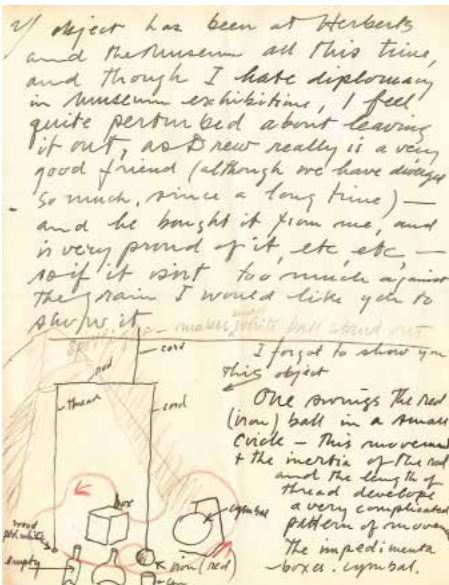 2/ object has been at Herberts
and the Museum all this time,
and though I hate diplomacy
in museum exhibitions, I feel
quite perturbed about leaving
it out, as Drew really is a very
good friend (although we have diverged
so much, since a long time) —
and he bought it from me, and
is very proud of it, etc, etc, —
so if it isn't too much against
the grain I would like you to
show it
makes small white ball stand out
I forgot to show you
this object
cord
rod
thread
cord
One swings the red
(iron) ball in a small
circle — this movement
+ the inertia of the rod
and the length of
thread develops
a very complicated
pattern of movement
The impedimenta
boxes, cymbal,
box
cymbal
wood
white
empty
iron (red)
can